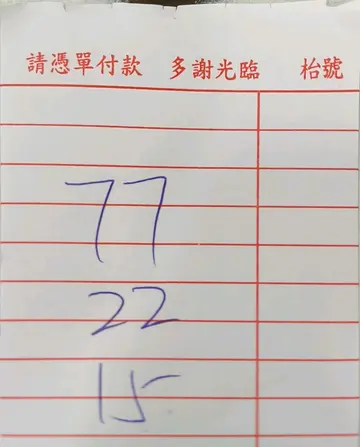 請憑單付款 多謝光臨 枱號
77
22
15